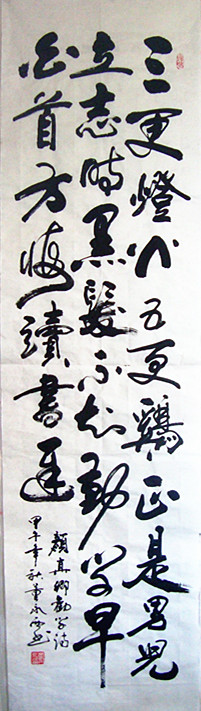 三更燈火五更鷄正是男兒
立志時黑髮不知勤学早
白首方悔讀書遲
顏真卿勸学詩
甲午年秋董